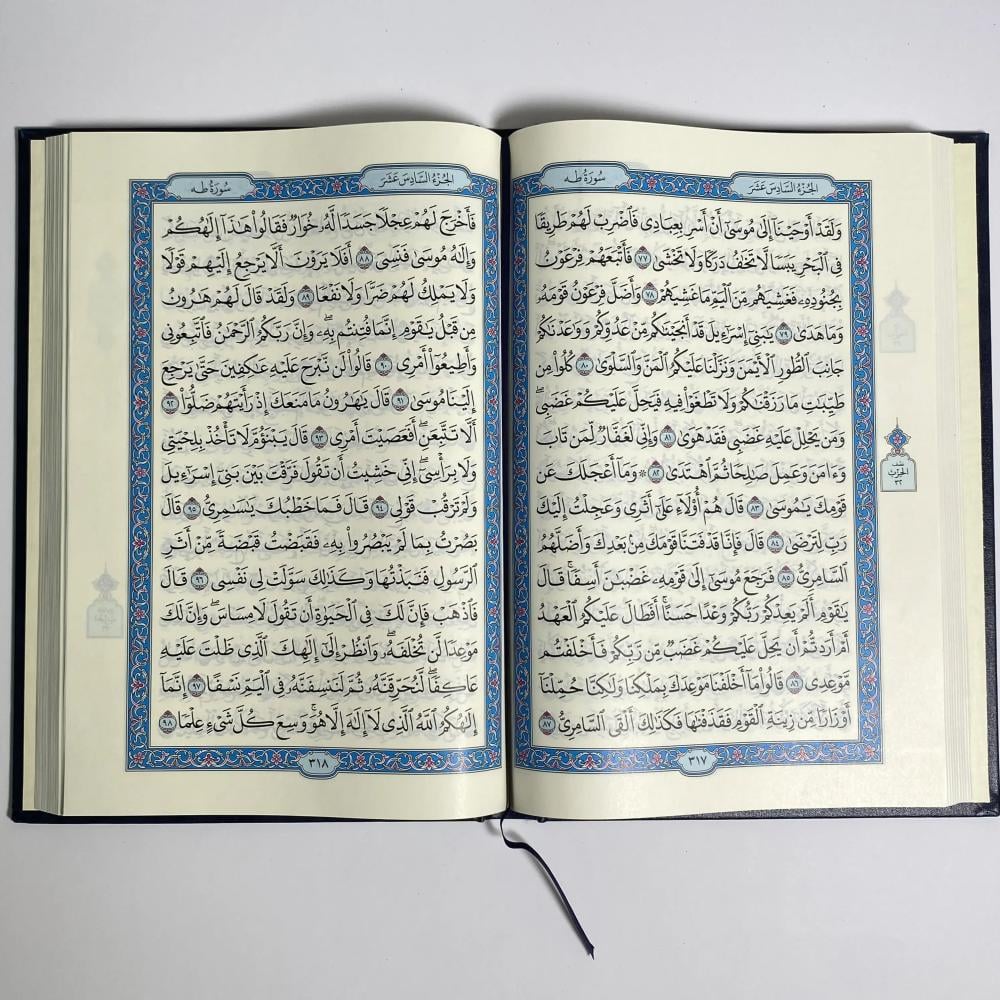 سُورَةُ طه
الجُزْءُ السَّادِسَ عَشَرَ
وَلَقَدْ أَوْحَيْنَآ إِلَىٰ مُوسَىٰٓ أَنْ أَسْرِ بِعِبَادِى فَٱضْرِبْ لَهُمْ طَرِيقًا
فِى ٱلْبَحْرِ يَبَسًا لَّا تَخَٰفُ دَرَكًا وَلَا تَخْشَىٰ ٧٧ فَأَتْبَعَهُمْ فِرْعَوْنُ
بِجُنُودِهِۦ فَغَشِيَهُم مِّنَ ٱلْيَمِّ مَا غَشِيَهُمْ ٧٨ وَأَضَلَّ فِرْعَوْنُ قَوْمَهُۥ
وَمَا هَدَىٰ ٧٩ يَٰبَنِىٓ إِسْرَٰٓءِيلَ قَدْ أَنجَيْنَٰكُم مِّنْ عَدُوِّكُمْ وَوَٰعَدْنَٰكُمْ
جَانِبَ ٱلطُّورِ ٱلْأَيْمَنَ وَنَزَّلْنَا عَلَيْكُمُ ٱلْمَنَّ وَٱلسَّلْوَىٰ ٨٠ كُلُوا۟ مِن
طَيِّبَٰتِ مَا رَزَقْنَٰكُمْ وَلَا تَطْغَوْا۟ فِيهِ فَيَحِلَّ عَلَيْكُمْ غَضَبِى ۖ
وَمَن يَحْلِلْ عَلَيْهِ غَضَبِى فَقَدْ هَوَىٰ ٨١ وَإِنِّى لَغَفَّارٌ لِّمَن تَابَ
وَءَامَنَ وَعَمِلَ صَٰلِحًا ثُمَّ ٱهْتَدَىٰ ٨٢ ۞ وَمَآ أَعْجَلَكَ عَن
قَوْمِكَ يَٰمُوسَىٰ ٨٣ قَالَ هُمْ أُو۟لَآءِ عَلَىٰٓ أَثَرِى وَعَجِلْتُ إِلَيْكَ
رَبِّ لِتَرْضَىٰ ٨٤ قَالَ فَإِنَّا قَدْ فَتَنَّا قَوْمَكَ مِنۢ بَعْدِكَ وَأَضَلَّهُمُ
ٱلسَّامِرِىُّ ٨٥ فَرَجَعَ مُوسَىٰٓ إِلَىٰ قَوْمِهِۦ غَضْبَٰنَ أَسِفًا ۚ قَالَ
يَٰقَوْمِ أَلَمْ يَعِدْكُمْ رَبُّكُمْ وَعْدًا حَسَنًا ۚ أَفَطَالَ عَلَيْكُمُ ٱلْعَهْدُ
أَمْ أَرَدتُّمْ أَن يَحِلَّ عَلَيْكُمْ غَضَبٌ مِّن رَّبِّكُمْ فَأَخْلَفْتُم
مَّوْعِدِى ٨٦ قَالُوا۟ مَآ أَخْلَفْنَا مَوْعِدَكَ بِمَلْكِنَا وَلَٰكِنَّا حُمِّلْنَآ
أَوْزَارًا مِّن زِينَةِ ٱلْقَوْمِ فَقَذَفْنَٰهَا فَكَذَٰلِكَ أَلْقَى ٱلسَّامِرِىُّ ٨٧
الحِزْب
٣٢
٣١٧
سُورَةُ طه
الجُزْءُ السَّادِسَ عَشَرَ
فَأَخْرَجَ لَهُمْ عِجْلًا جَسَدًا لَّهُۥ خُوَارٌ فَقَالُوا۟ هَٰذَآ إِلَٰهُكُمْ
وَإِلَٰهُ مُوسَىٰ فَنَسِىَ ٨٨ أَفَلَا يَرَوْنَ أَلَّا يَرْجِعُ إِلَيْهِمْ قَوْلًا
وَلَا يَمْلِكُ لَهُمْ ضَرًّا وَلَا نَفْعًا ٨٩ وَلَقَدْ قَالَ لَهُمْ هَٰرُونُ
مِن قَبْلُ يَٰقَوْمِ إِنَّمَا فُتِنتُم بِهِۦ ۖ وَإِنَّ رَبَّكُمُ ٱلرَّحْمَٰنُ فَٱتَّبِعُونِى
وَأَطِيعُوٓا۟ أَمْرِى ٩٠ قَالُوا۟ لَن نَّبْرَحَ عَلَيْهِ عَٰكِفِينَ حَتَّىٰ يَرْجِعَ
إِلَيْنَا مُوسَىٰ ٩١ قَالَ يَٰهَٰرُونُ مَا مَنَعَكَ إِذْ رَأَيْتَهُمْ ضَلُّوٓا۟ ٩٢
أَلَّا تَتَّبِعَنِ ۖ أَفَعَصَيْتَ أَمْرِى ٩٣ قَالَ يَبْنَؤُمَّ لَا تَأْخُذْ بِلِحْيَتِى
وَلَا بِرَأْسِىٓ ۖ إِنِّى خَشِيتُ أَن تَقُولَ فَرَّقْتَ بَيْنَ بَنِىٓ إِسْرَٰٓءِيلَ
وَلَمْ تَرْقُبْ قَوْلِى ٩٤ قَالَ فَمَا خَطْبُكَ يَٰسَٰمِرِىُّ ٩٥ قَالَ
بَصُرْتُ بِمَا لَمْ يَبْصُرُوا۟ بِهِۦ فَقَبَضْتُ قَبْضَةً مِّنْ أَثَرِ
ٱلرَّسُولِ فَنَبَذْتُهَا وَكَذَٰلِكَ سَوَّلَتْ لِى نَفْسِى ٩٦ قَالَ
فَٱذْهَبْ فَإِنَّ لَكَ فِى ٱلْحَيَوٰةِ أَن تَقُولَ لَا مِسَاسَ ۖ وَإِنَّ لَكَ
مَوْعِدًا لَّن تُخْلَفَهُۥ ۖ وَٱنظُرْ إِلَىٰٓ إِلَٰهِكَ ٱلَّذِى ظَلْتَ عَلَيْهِ
عَاكِفًا ۖ لَّنُحَرِّقَنَّهُۥ ثُمَّ لَنَنسِفَنَّهُۥ فِى ٱلْيَمِّ نَسْفًا ٩٧ إِنَّمَآ
إِلَٰهُكُمُ ٱللَّهُ ٱلَّذِى لَآ إِلَٰهَ إِلَّا هُوَ ۚ وَسِعَ كُلَّ شَىْءٍ عِلْمًا ٩٨
٣١٨